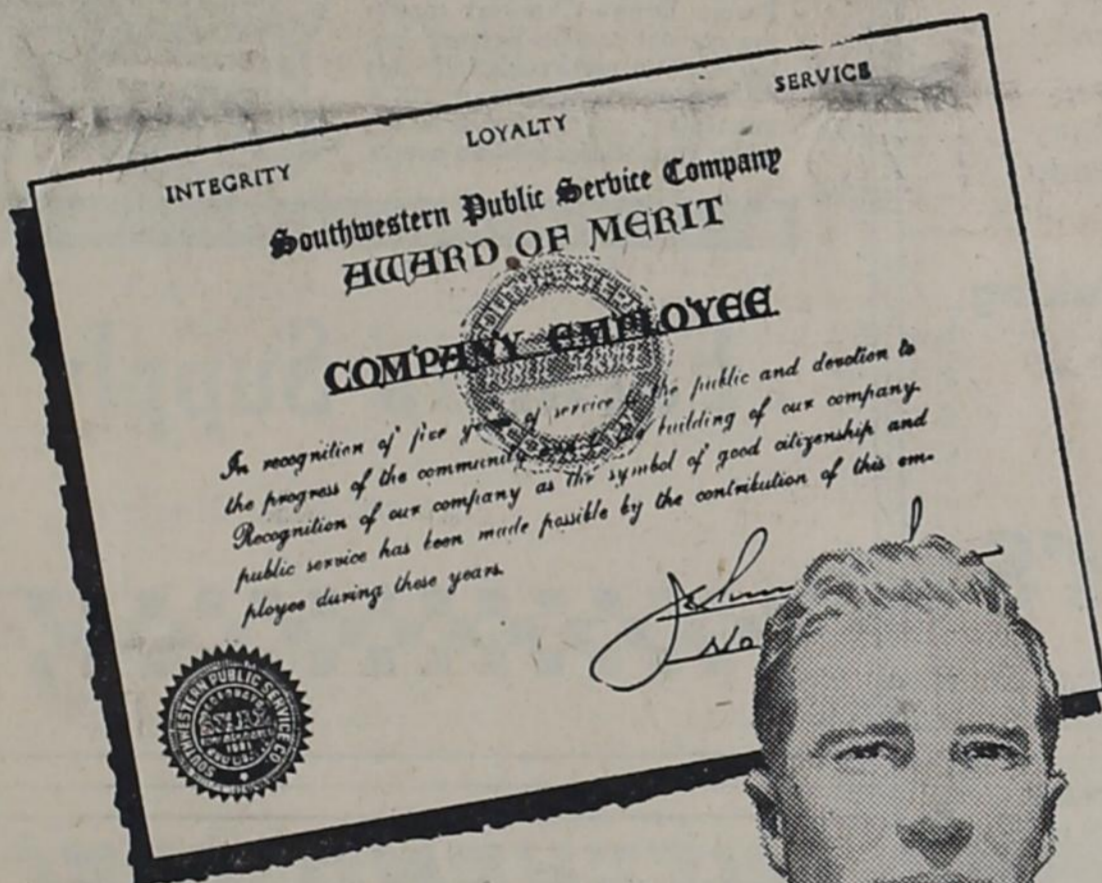 INTEGRITY LOYALTY SERVICE
Southwestern Public Service Company
AWARD OF MERIT
COMPANY EMPLOYEE
In recognition of five of service the public and devotion to
the progress of the community building of our company.
Recognition of our company as the symbol of good citizenship and
public service has been made possible by the contribution of this em-
ployee during these years.
SOUTHWESTERN PUBLIC SERVICE CO.